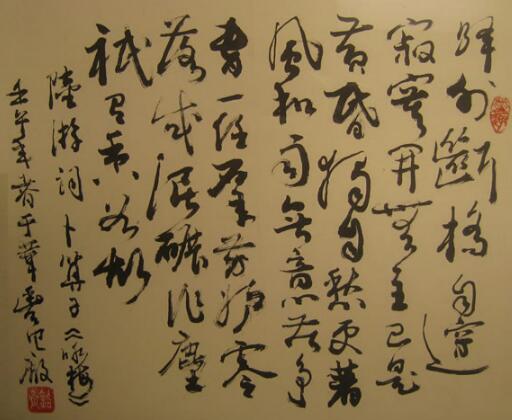 驛外斷橋邊
寂寞開無主已是
黄昏獨自愁更著
風和雨無意苦爭
春一任群芳妒零
落成泥碾作塵
祇有香如故
陸游詞卜算子《咏梅》
壬午